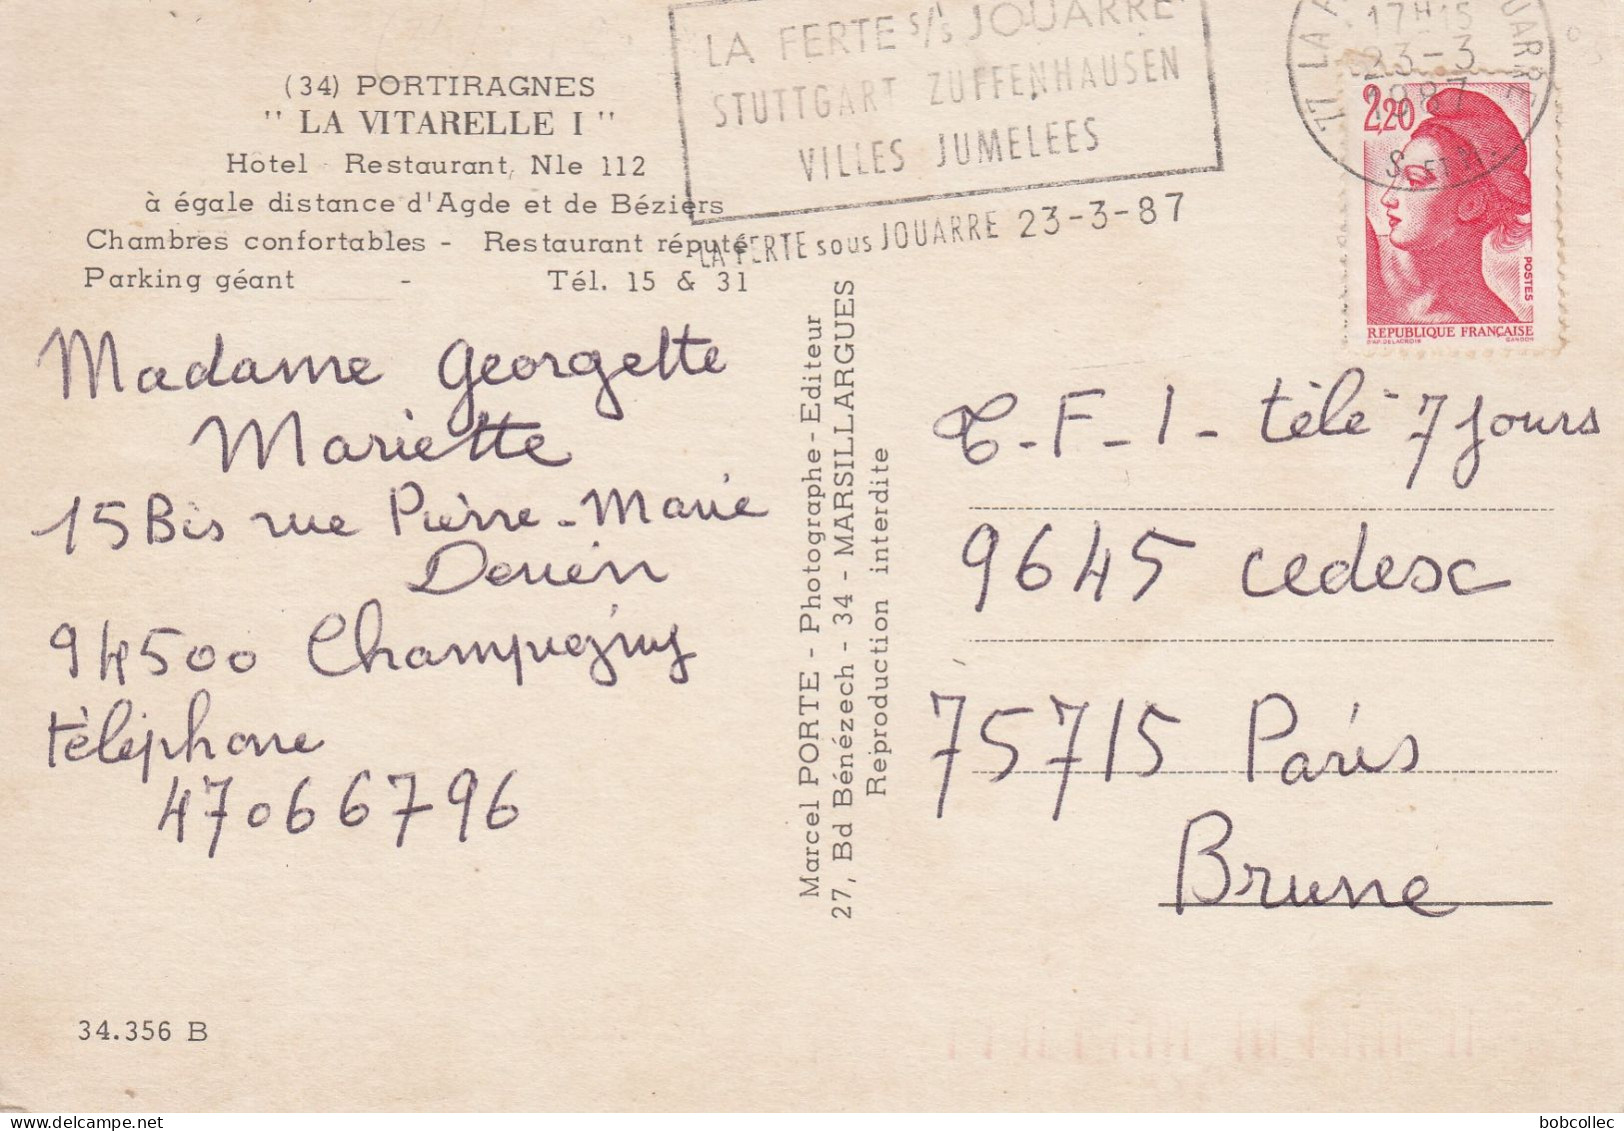 (34) PORTIRAGNES
" LA VITARELLE I "
Hôtel - Restaurant, Nle 112
à égale distance d'Agde et de Béziers
Chambres confortables - Restaurant réputé
Parking géant - Tél. 15 & 31
LA FERTE S/S JOUARRE
STUTTGART ZUFFENHAUSEN
VILLES JUMELEES
LA FERTE sous JOUARRE 23-3-87
77 LA
17H15
23-3
1987
S. ET M.
2,20
POSTES
REPUBLIQUE FRANÇAISE
D'AP. DELACROIX GANDON
Madame Georgette
Mariette
15 Bis rue Pierre-Marie
Derien
94500 Champigny
télephone
47066796
Marcel PORTE - Photographe-Editeur
27, Bd Bénézech - 34 - MARSILLARGUES
Reproduction interdite
T-F-1- télé 7 jours
9645 cedesc
75715 Paris
Brune
34.356 B
bobcollec